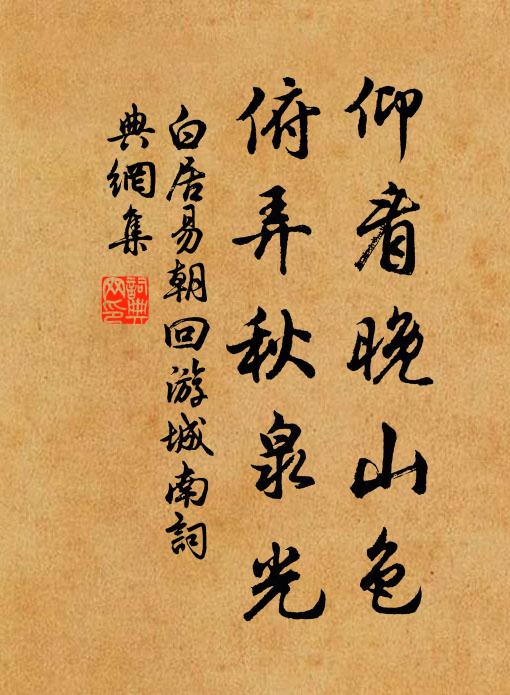 仰看晚山色
俯弄秋泉光
白居易朝回游城南詞
典網集
詞典
网印